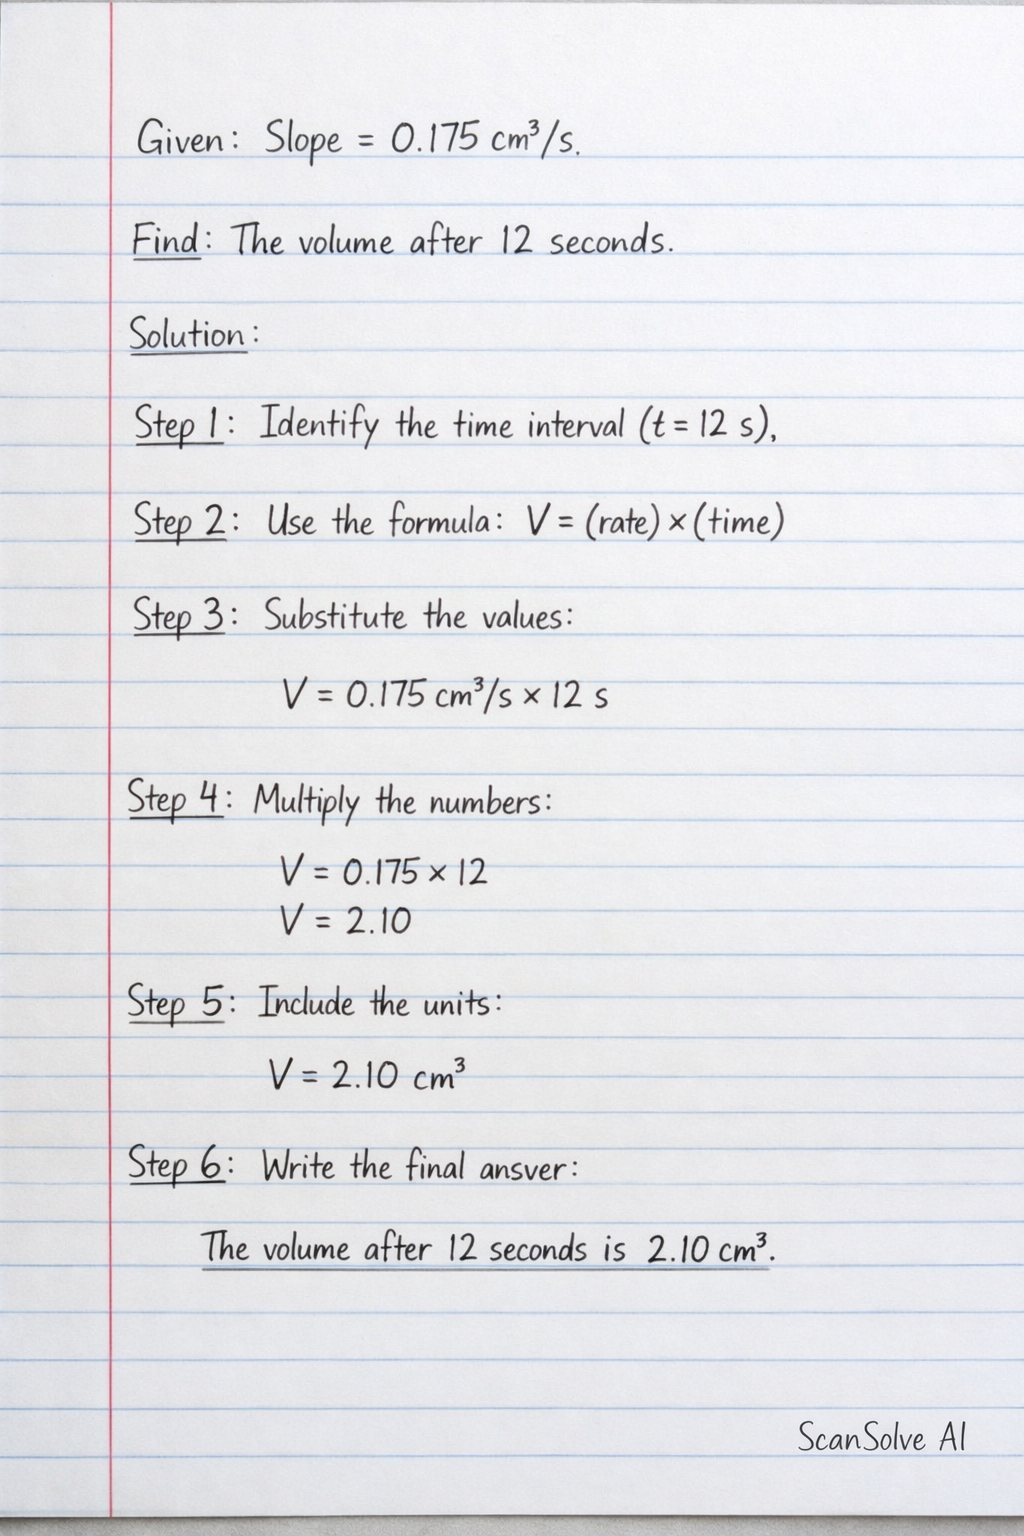 Given: Slope = 0.175 cm³/s.
Find: The volume after 12 seconds.
Solution:
Step 1: Identify the time interval (t = 12 s),
Step 2: Use the formula: V = (rate) × (time)
Step 3: Substitute the values:
V = 0.175 cm³/s × 12 s
Step 4: Multiply the numbers:
V = 0.175 × 12
V = 2.10
Step 5: Include the units:
V = 2.10 cm³
Step 6: Write the final ansver:
The volume after 12 seconds is 2.10 cm³.
ScanSolve AI